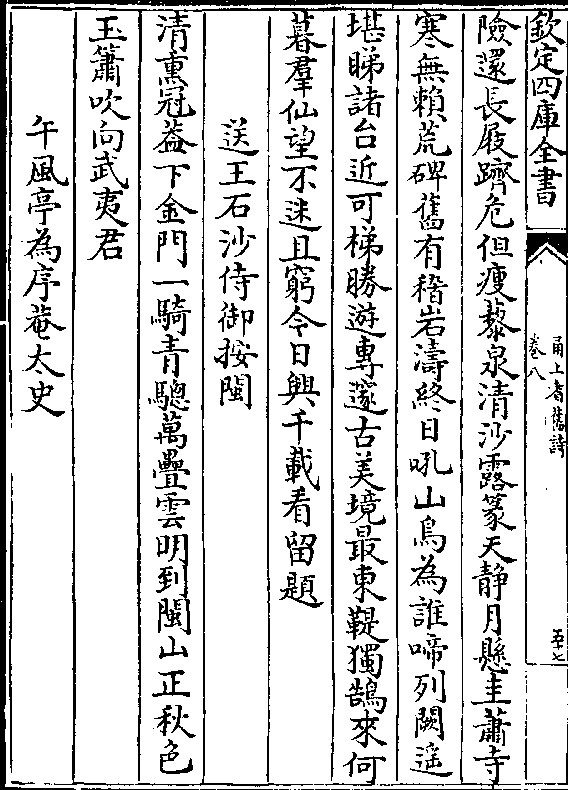 欽定四庫全書
甬上耆舊詩
卷八
五十七
險還長屐躋危但瘦藜泉清沙露篆天静月懸圭蕭寺
寒無賴荒碑舊有稽岩濤終日吼山鳥為誰啼列闕遥
堪睇諸台近可梯勝遊專邃古美境最東鞮獨鵠來何
暮羣仙望不迷且窮今日興千載看留題
送王石沙侍御按閩
清熏冠葢下金門一騎青驄萬疊雲明到閩山正秋色
玉簫吹向武夷君
午風亭為序菴太史